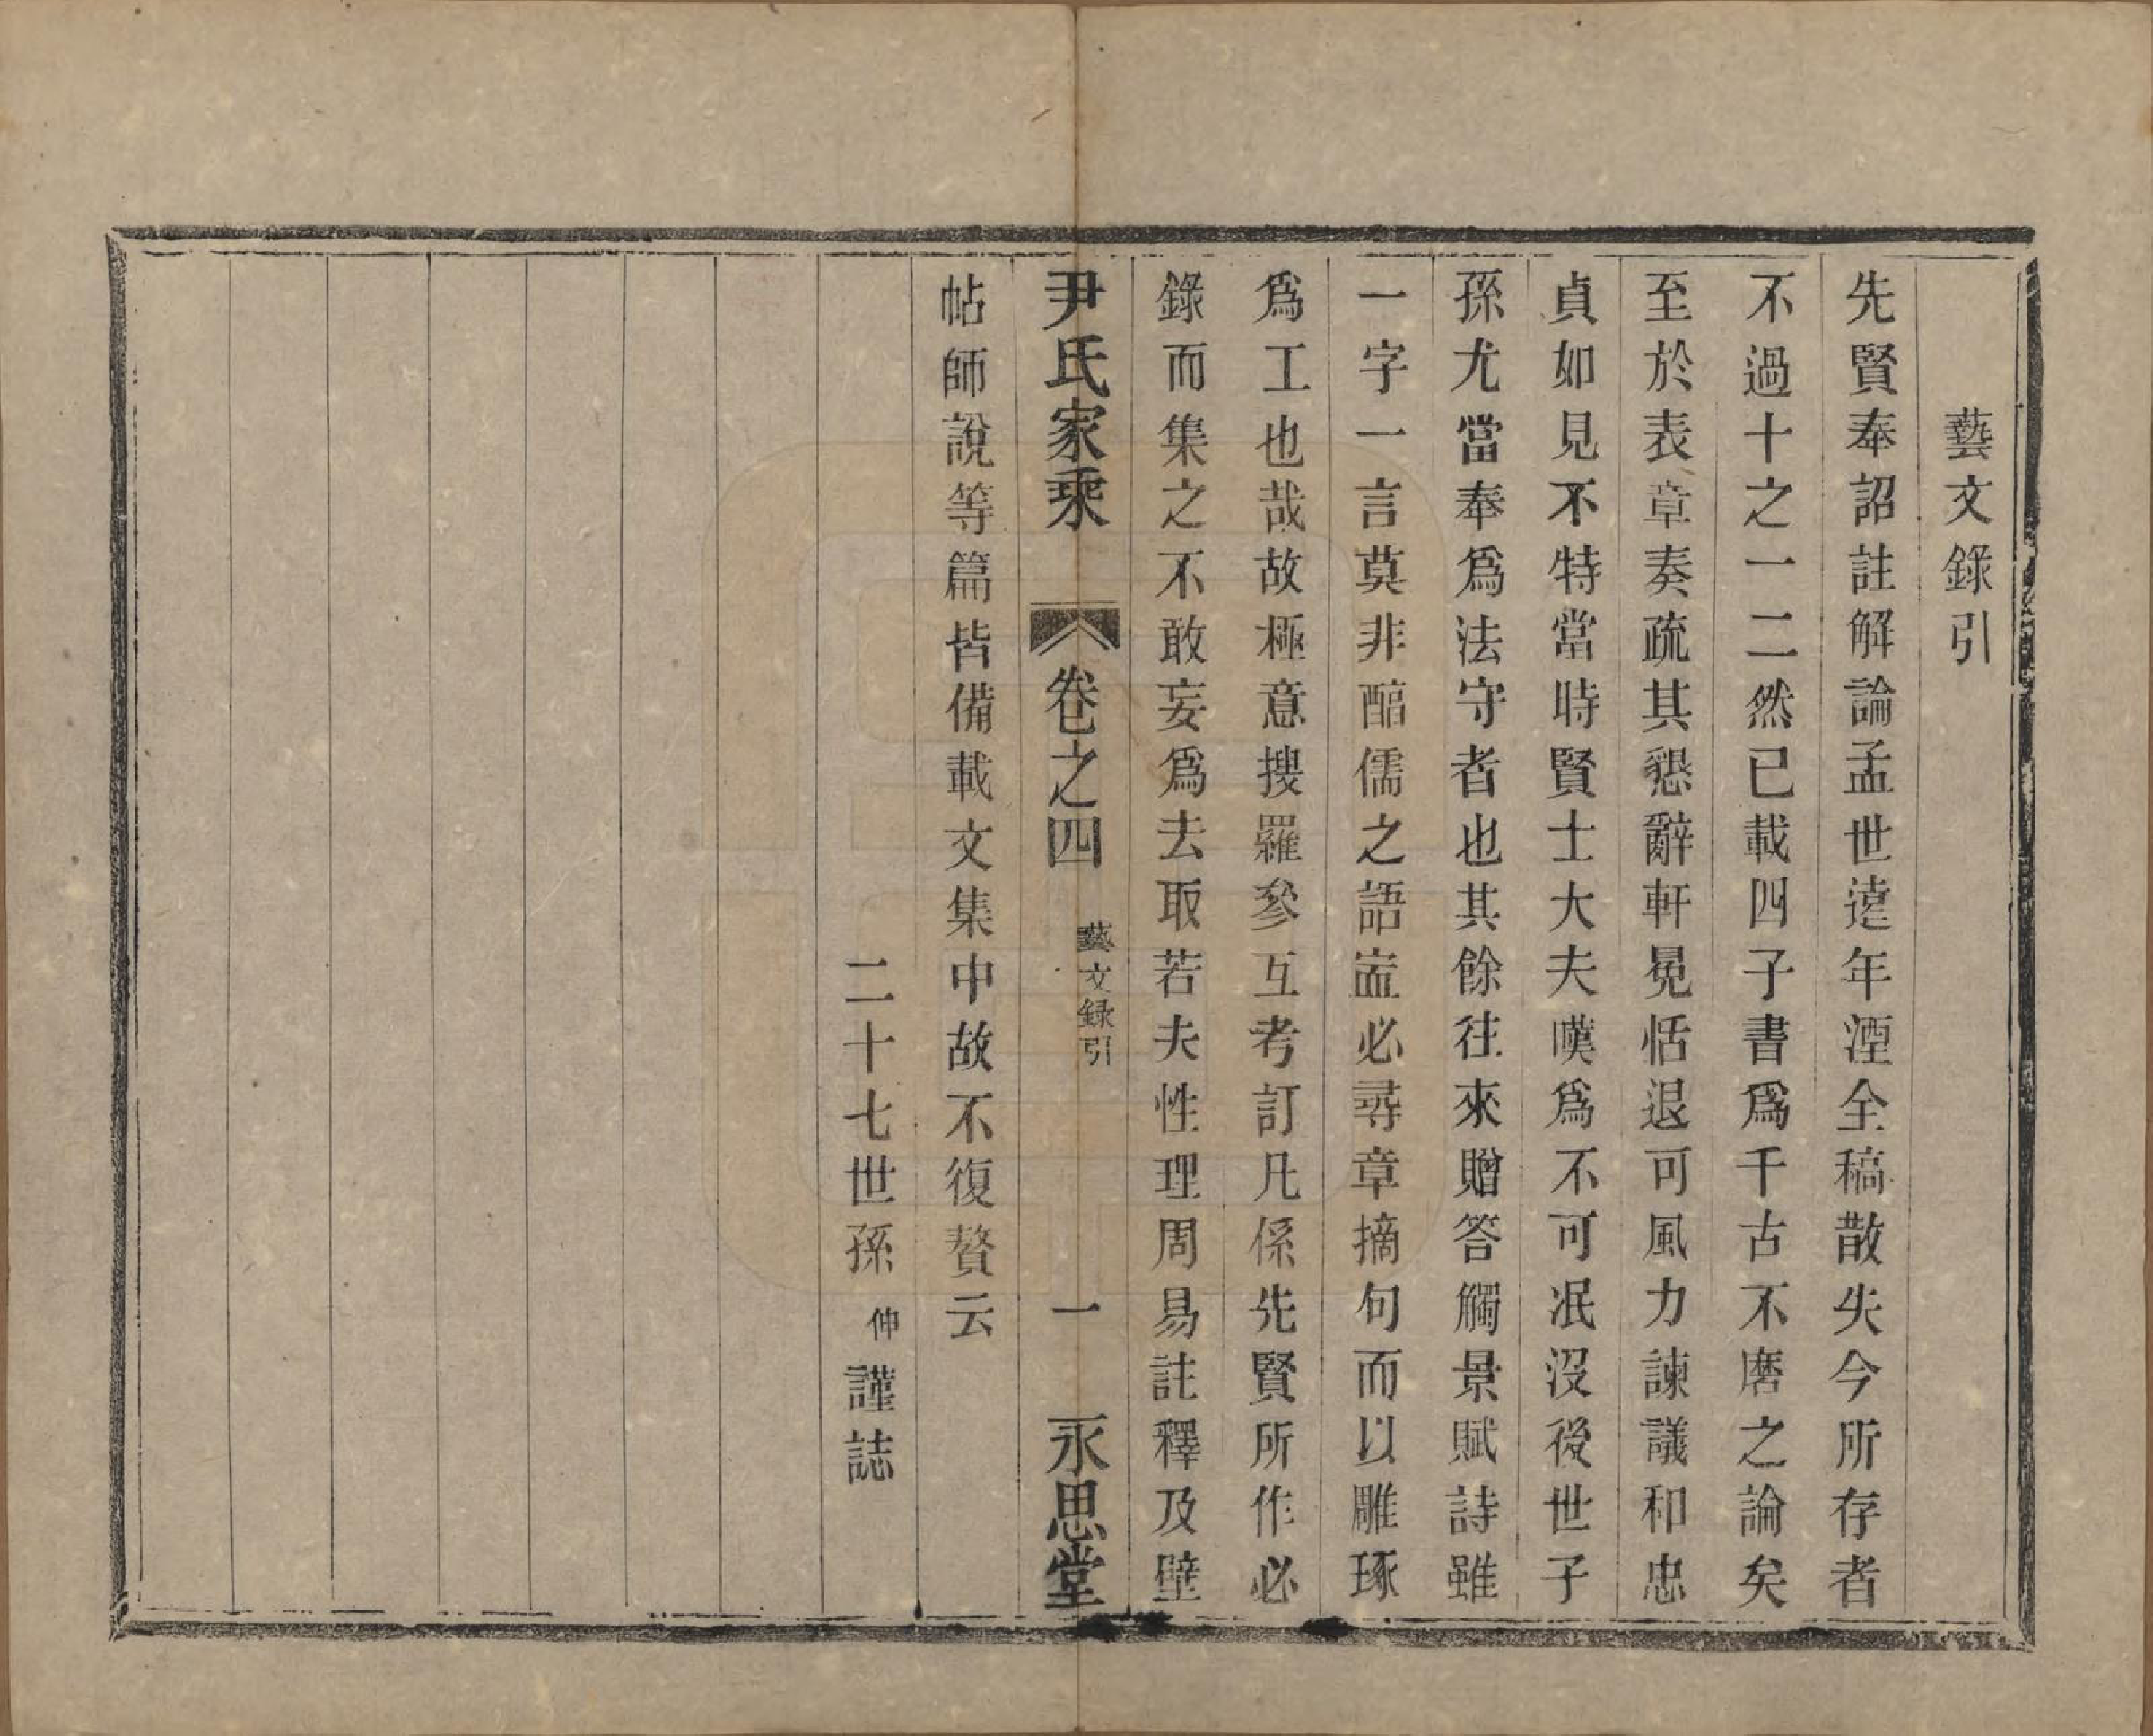 藝文錄引
先賢奉詔註解論孟世遠年湮全稿散失今所存者
不過十之一二然已載四子書爲千古不磨之論矣
至於表章奏疏其懇辭軒冕恬退可風力諫議和忠
貞如見不特當時賢士大夫嘆爲不可冺沒後世子
孫尤當奉爲法守者也其餘往來贈答觸景賦詩雖
一字一言莫非醕儒之語豈必尋章摘句而以雕琢
爲工也哉故極意搜羅參互考訂凡係先賢所作必
錄而集之不敢妄爲去取若夫性理周易註釋及壁
尹氏家乘 卷之四 藝文録引 一 永思堂
帖師說等篇皆備載文集中故不復贅云
二十七世孫 伸 謹誌